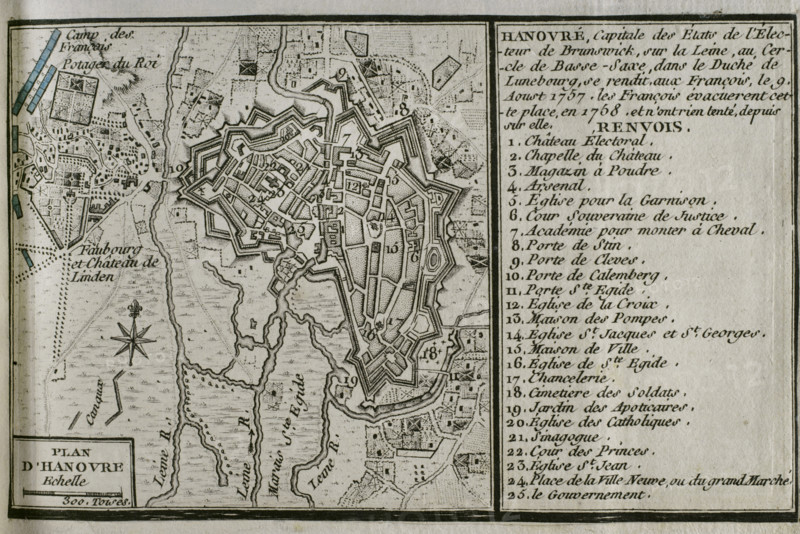 Camp des
François
Potager du Roi
Faubourg
et Château de
Linden
Canaux
Leine R.
Leine R.
Marais Ste Egide
Leine R.
PLAN
D'HANOVRE
Echelle
300. Toises.
HANOVRE, Capitale des États de l'Élec-
-teur de Brunswick, sur la Leine, au Cer-
-cle de Basse-Saxe, dans le Duché de
Lunebourg, se rendit aux François, le 9.
Aoust 1757. les François évacuerent cet-
-te place, en 1758. et n'ont rien tenté, depuis
sur elle.
RENVOIS.
1. Château Electoral.
2. Chapelle du Château.
3. Magazin à Poudre.
4. Arsenal.
5. Eglise pour la Garnison.
6. Cour Souveraine de Justice.
7. Académie pour monter à Cheval.
8. Porte de Stin.
9. Porte de Cleves.
10. Porte de Calemberg.
11. Porte Ste Egide.
12. Eglise de la Croix.
13. Maison des Pompes.
14. Eglise St. Jacques et St. Georges.
15. Maison de Ville.
16. Eglise de Ste Egide.
17. Chancelerie.
18. Cimetiere des Soldats.
19. Jardin des Apoticaires.
20. Eglise des Catholiques.
21. Sinagogue.
22. Cour des Princes.
23. Eglise St. Jean.
24. Place de la Ville Neuve, ou du grand Marché
25. le Gouvernement.